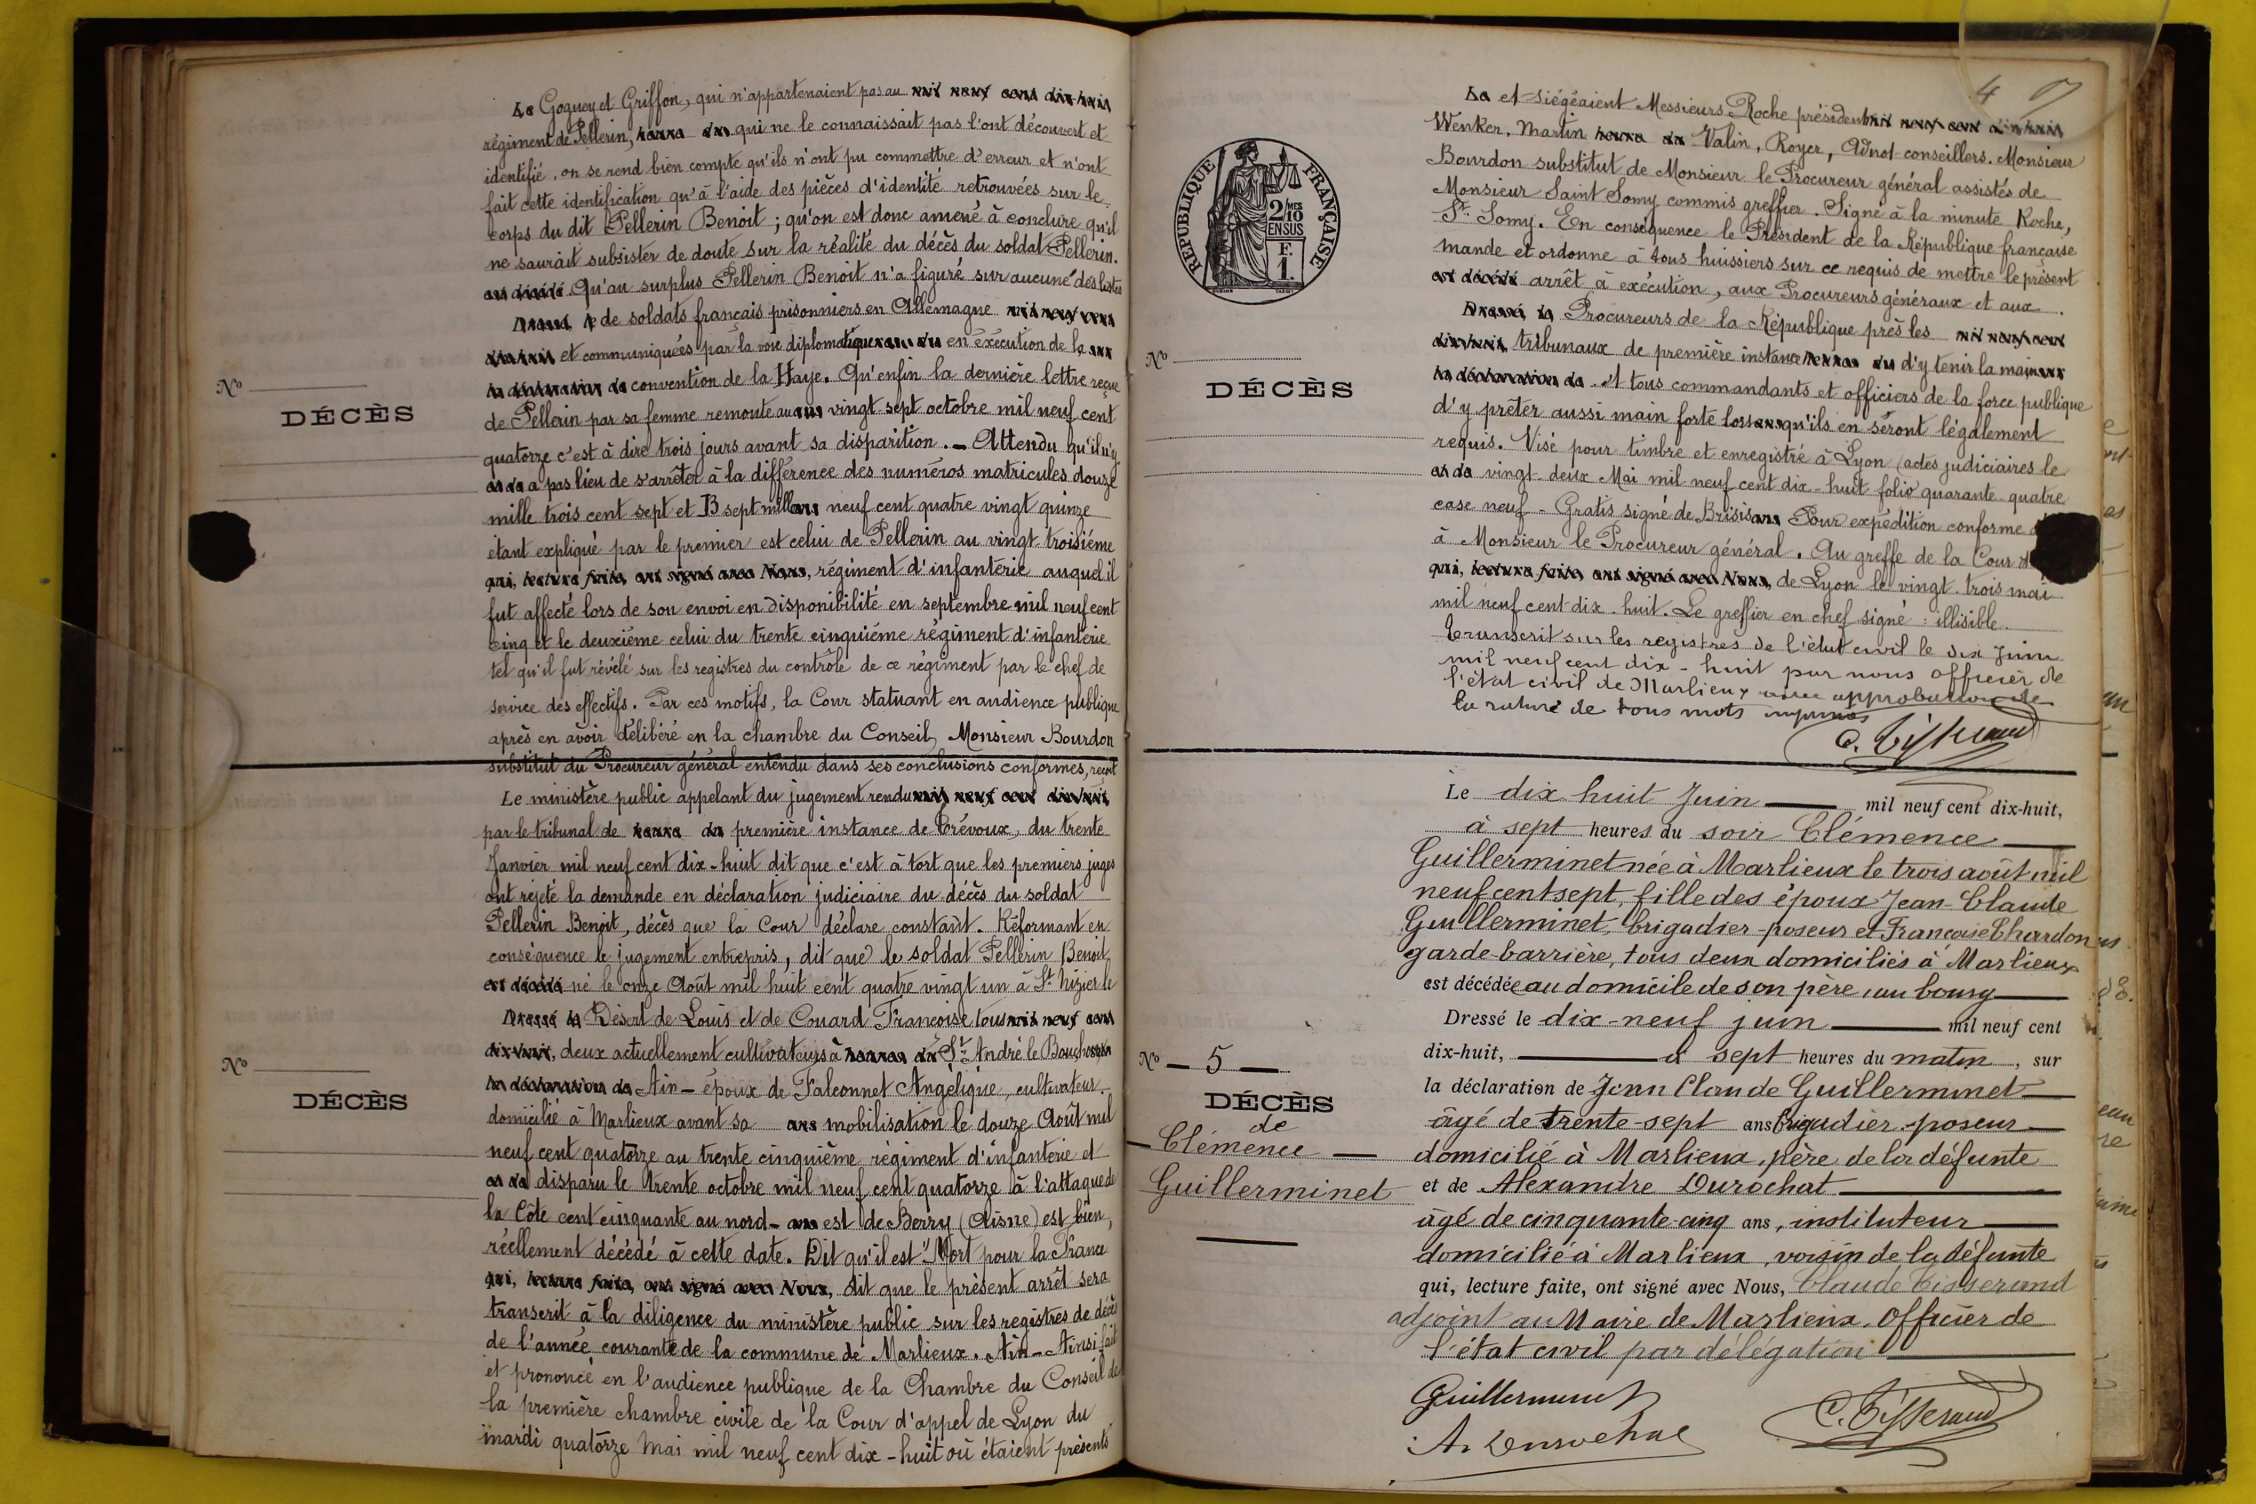 Goguey et Griffon, qui n'appartenaient pas au
régiment de Pellerin, qui ne le connaissait pas l'ont découvert et
identifié, on se rend bien compte qu'ils n'ont pu commettre d'erreur et n'ont
fait cette identification qu'à l'aide des pièces d'identité retrouvées sur le
corps du dit Pellerin Benoit ; qu'on est donc amené à conclure qu'il
ne saurait subsister de doute sur la réalité du décès du soldat Pellerin.
Qu'au surplus Pellerin Benoit n'a figuré sur aucune des listes
de soldats français prisonniers en Allemagne
et communiquées par la voie diplomatique en exécution de la
convention de la Haye. Qu'enfin la dernière lettre reçue
de Pellerin par sa femme remonte au vingt sept octobre mil neuf cent
quatorze c'est à dire trois jours avant sa disparition. - Attendu qu'il n'y
a pas lieu de s'arrêter à la différence des numéros matricules douze
mille trois cent sept et B sept mille neuf cent quatre vingt quinze
étant expliqué par le premier est celui de Pellerin au vingt troisième
régiment d'infanterie auquel il
fut affecté lors de son envoi en disponibilité en septembre mil neuf cent
cinq et le deuxième celui du trente cinquième régiment d'infanterie
tel qu'il fut révélé sur les registres du contrôle de ce régiment par le chef de
service des effectifs. Par ces motifs, la Cour statuant en audience publique
après en avoir délibéré en la chambre du Conseil, Monsieur Bourdon
substitut du Procureur général entendu dans ses conclusions conformes, reçoit
Nº
DÉCÈS
Le ministère public appelant du jugement rendu
par le tribunal de première instance de Trévoux, du trente
Janvier mil neuf cent dix-huit dit que c'est à tort que les premiers juges
ont rejeté la demande en déclaration judiciaire du décès du soldat
Pellerin Benoit, décès que la Cour déclare constant. Réformant en
conséquence le jugement entrepris, dit que le soldat Pellerin Benoit
né le onze Août mil huit cent quatre vingt un à St Nizier le
Désert de Louis et de Couard Françoise tous
deux actuellement cultivateurs à St André le Bouchoux
Ain - époux de Falconnet Angélique, cultivateur
domicilié à Marlieux avant sa mobilisation le douze Août mil
neuf cent quatorze au trente cinquième régiment d'infanterie et
disparu le trente octobre mil neuf cent quatorze à l'attaque de
la Côte cent cinquante au nord-est de Berry (Aisne) est bien,
réellement décédé à cette date. Dit qu'il est "Mort pour la France
dit que le présent arrêt sera
transcrit à la diligence du ministère public sur les registres de décès
de l'année courante de la commune de Marlieux. Ain - Ainsi fait
et prononcé en l'audience publique de la Chambre du Conseil de
la première chambre civile de la Cour d'appel de Lyon du
mardi quatorze Mai mil neuf cent dix-huit où étaient présents
Nº
DÉCÈS
4
RÉPUBLIQUE FRANÇAISE
2/10 MES
EN SUS
F.
1.
et siégeaient Messieurs Roche président
Wenker, Martin Valin, Royer, Adnot conseillers. Monsieur
Bourdon substitut de Monsieur le Procureur général assistés de
Monsieur Saint Somy commis greffier. Signé à la minute Roche,
St Somy. En conséquence le Président de la République française
mande et ordonne à tous huissiers sur ce requis de mettre le présent
arrêt à exécution, aux Procureurs généraux et aux
Procureurs de la République près les
tribunaux de première instance d'y tenir la main
et tous commandants et officiers de la force publique
d'y prêter aussi main forte lorsqu'ils en seront légalement
requis. Visé pour timbre et enregistré à Lyon (actes judiciaires le
vingt-deux Mai mil neuf cent dix-huit folio quarante-quatre
case neuf. Gratis signé de Brisis Pour expédition conforme
à Monsieur le Procureur général. Au greffe de la Cour
de Lyon le vingt trois mai
mil neuf cent dix huit. Le greffier en chef signé : illisible.
Transcrit sur les registres de l'état civil le dix Juin
mil neuf cent dix-huit par nous officier de
l'état civil de Marlieux avec approbation de
la rature de tous mots imprimés
C. Tisserand
Nº
DÉCÈS
Le dix huit Juin mil neuf cent dix-huit,
à sept heures du soir Clémence
Guillerminet née à Marlieux le trois août mil
neuf cent sept, fille des époux Jean-Claude
Guillerminet, brigadier-poseur et Françoise Chardon
garde-barrière, tous deux domiciliés à Marlieux
est décédée au domicile de son père, au bourg
Dressé le dix-neuf juin mil neuf cent
dix-huit, à sept heures du matin, sur
la déclaration de Jean Claude Guillerminet
âgé de trente-sept ans brigadier-poseur
domicilié à Marlieux, père de la défunte
et de Alexandre Durochat
âgé de cinquante-cinq ans, instituteur
domicilié à Marlieux, voisin de la défunte
qui, lecture faite, ont signé avec Nous, Claude Tisserand
adjoint au Maire de Marlieux. Officier de
l'état civil par délégation
Nº 5
DÉCÈS
de
Clémence
Guillerminet
Guillerminet
A. Durochat
C. Tisserand